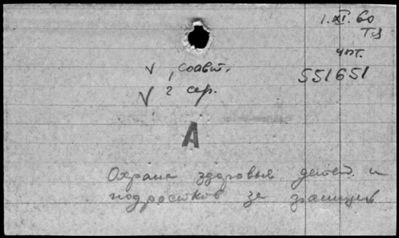 1.XI.60
Тз
чт.
√ , соавт.
551651
√ 2 сер.
А
Охрана здоровья детей и
подростков за границей